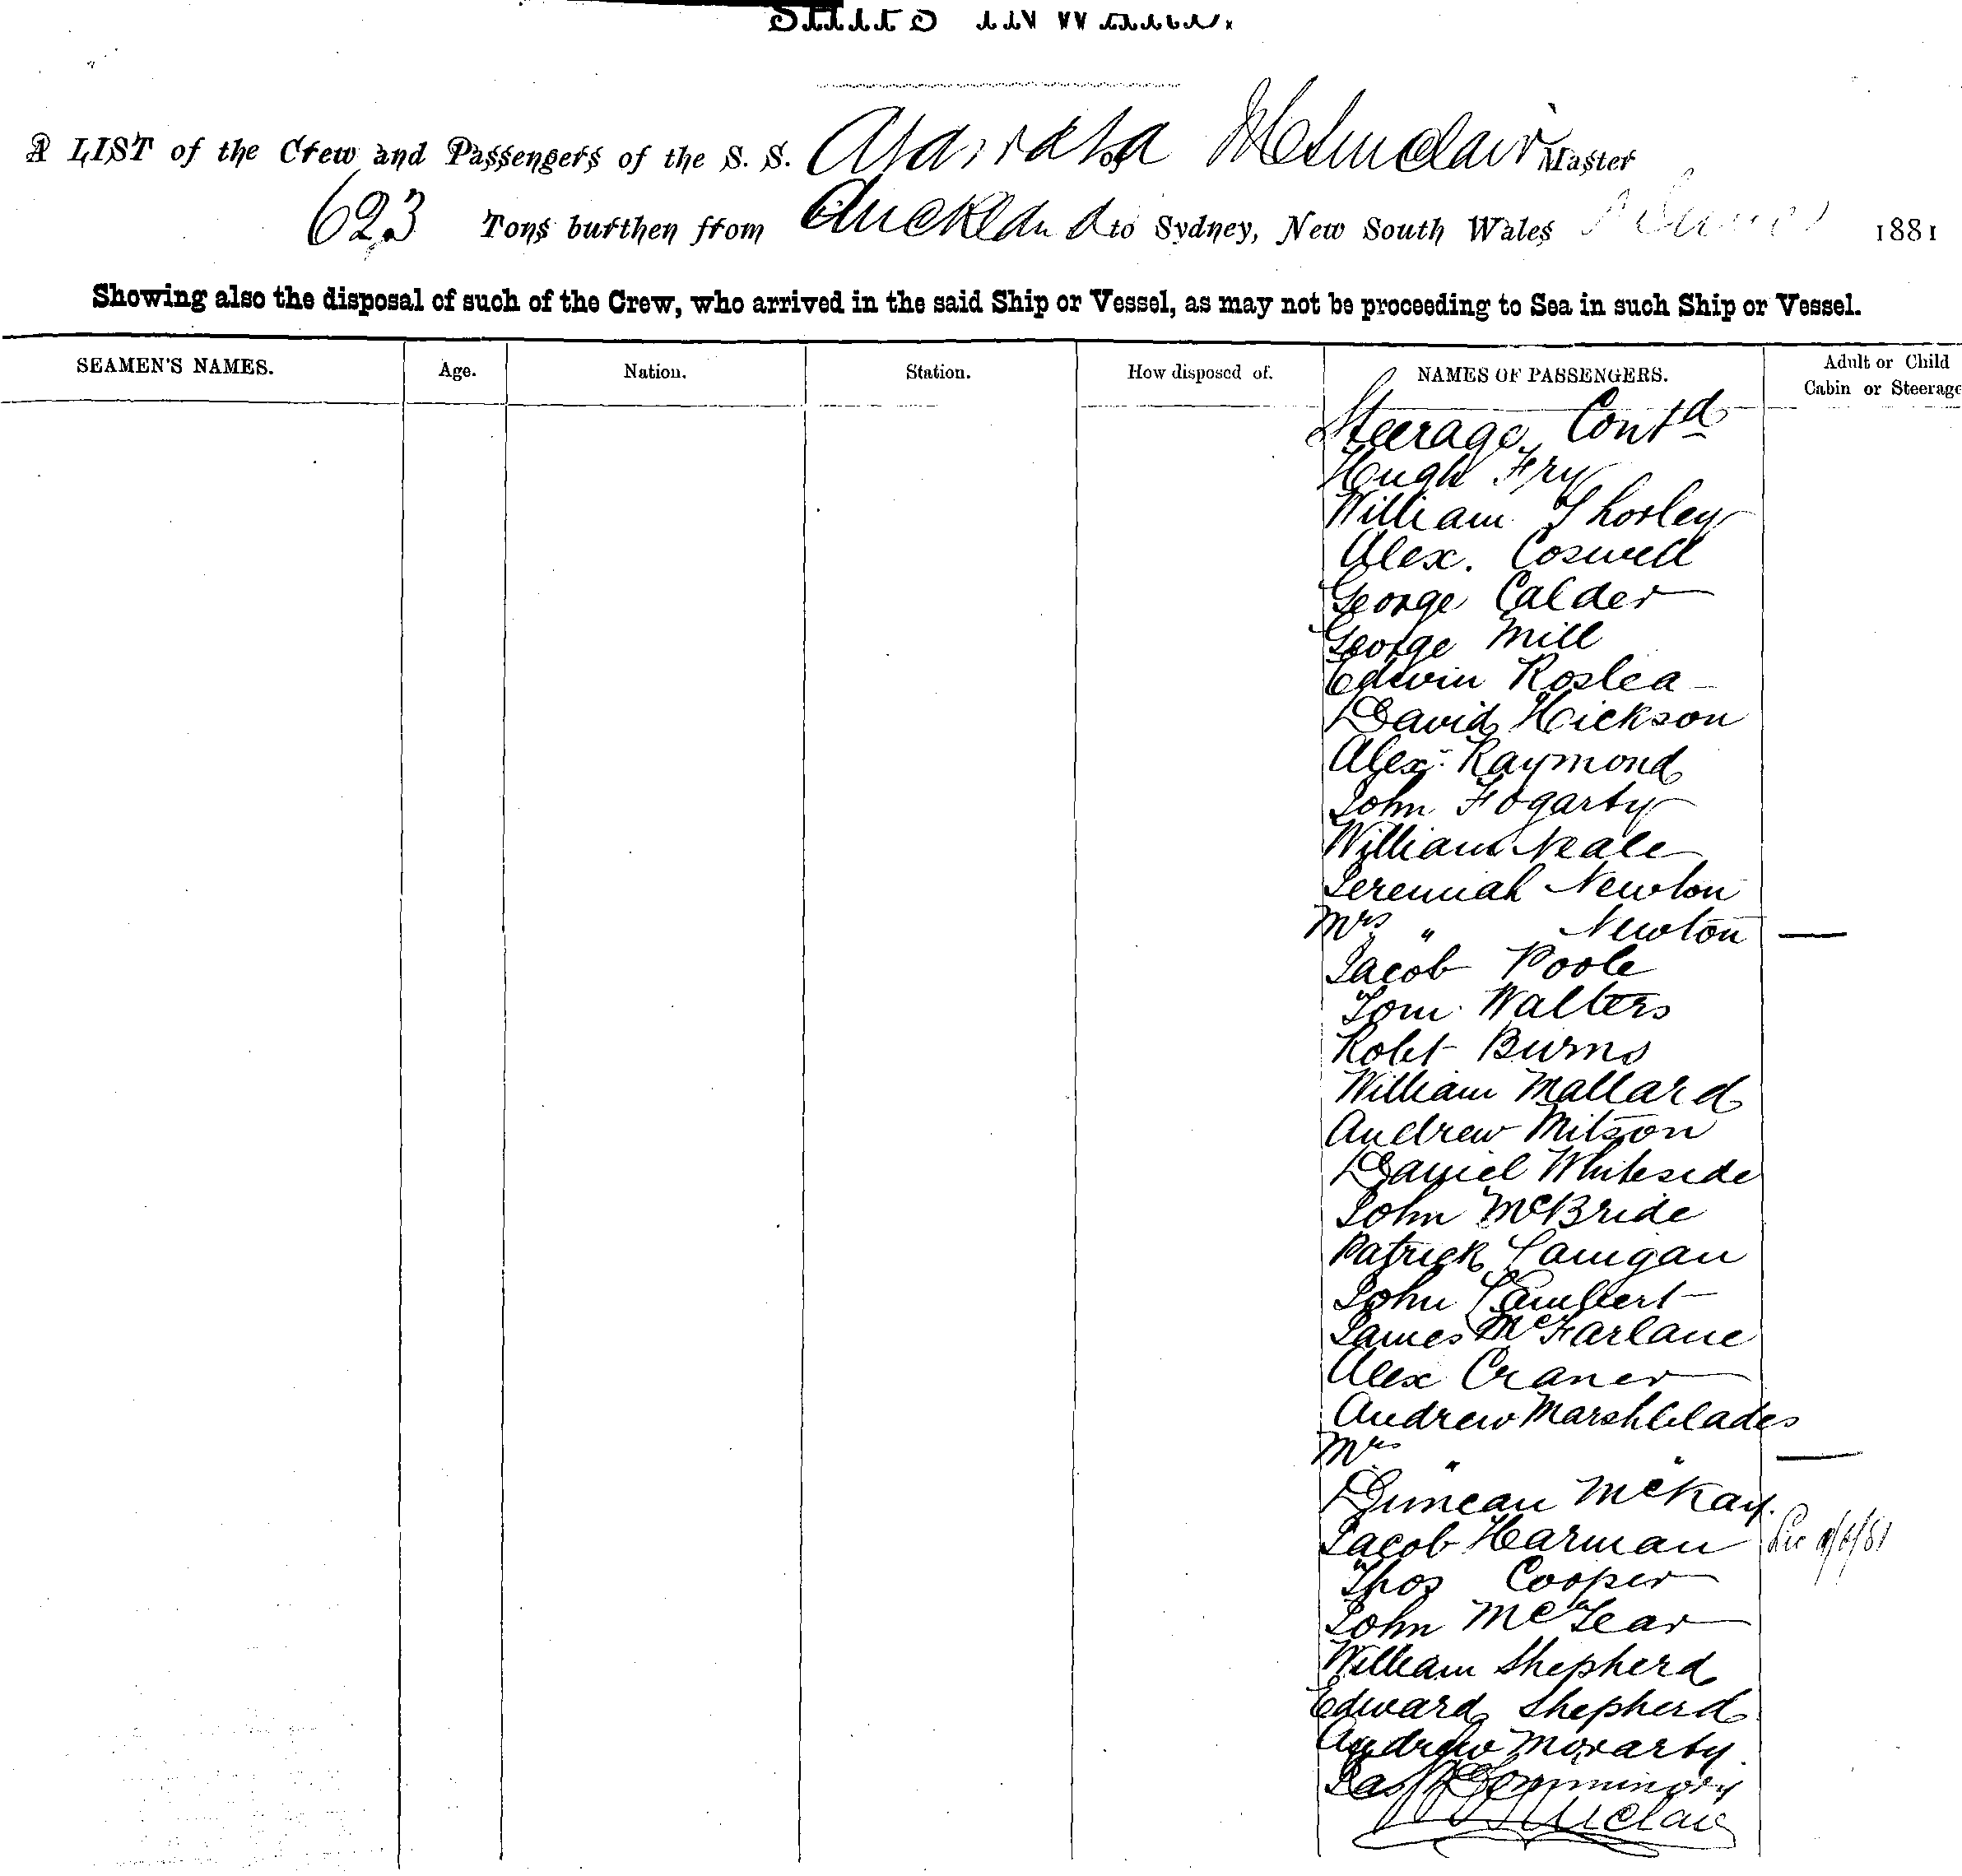 SHIPS INWARD.
A LIST of the Crew and Passengers of the S. S. Ararata of Sinclair Master
623 Tons burthen from Auckland to Sydney, New South Wales June 1881
Showing also the disposal of such of the Crew, who arrived in the said Ship or Vessel, as may not be proceeding to Sea in such Ship or Vessel.
SEAMEN'S NAMES. Age. Nation. Station. How disposed of. NAMES OF PASSENGERS. Adult or Child Cabin or Steerage
Steerage Contd
Hugh Fry
William Thorley
Alex. Coswell
George Calder
George Mill
Edwin Roslea
David Hickson
Alex. Raymond
John Fogarty
William Neale
Jeremiah Newton
Mrs " Newton —
Jacob Poole
Tom Walters
Robt Burns
William Mallard
Andrew Mitson
Daniel Whiteside
John McBride
Patrick Lanigan
John Lambert
James McFarlane
Alex Craner
Andrew Marshblades
Mrs " " —
Duncan McKay.
Jacob Harman
Thos Cooper
John McLear
William Shepherd
Edward Shepherd
Andrew Morarty
Jas
Sinclair